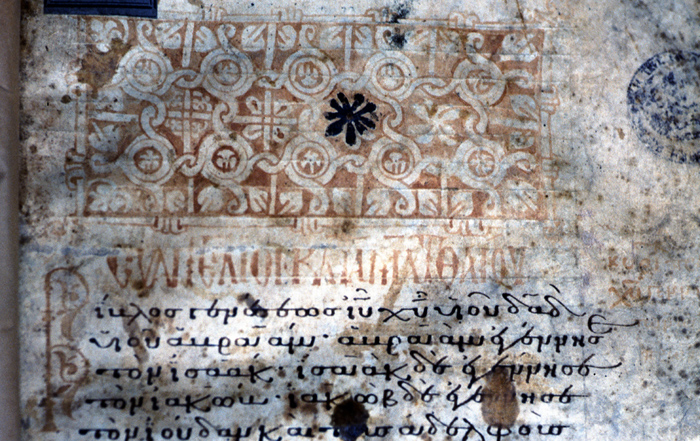 ΕΥΑΓΓΕΛΙΟΝ ΚΑΤΑ ΜΑΤΘΑΙΟΝ
Βίβλος γενέσεως ἰυ χυ υἱοῦ δαδ
υἱοῦ ἀβραάμ· ἀβραὰμ ἐγέννησε
τὸν ἰσαάκ· ἰσαὰκ δὲ ἐγέννησε
τὸν ἰακώβ· ἰακὼβ δὲ ἐγέννησε
τὸν ἰούδαν καὶ τοὺς ἀδελφοὺς